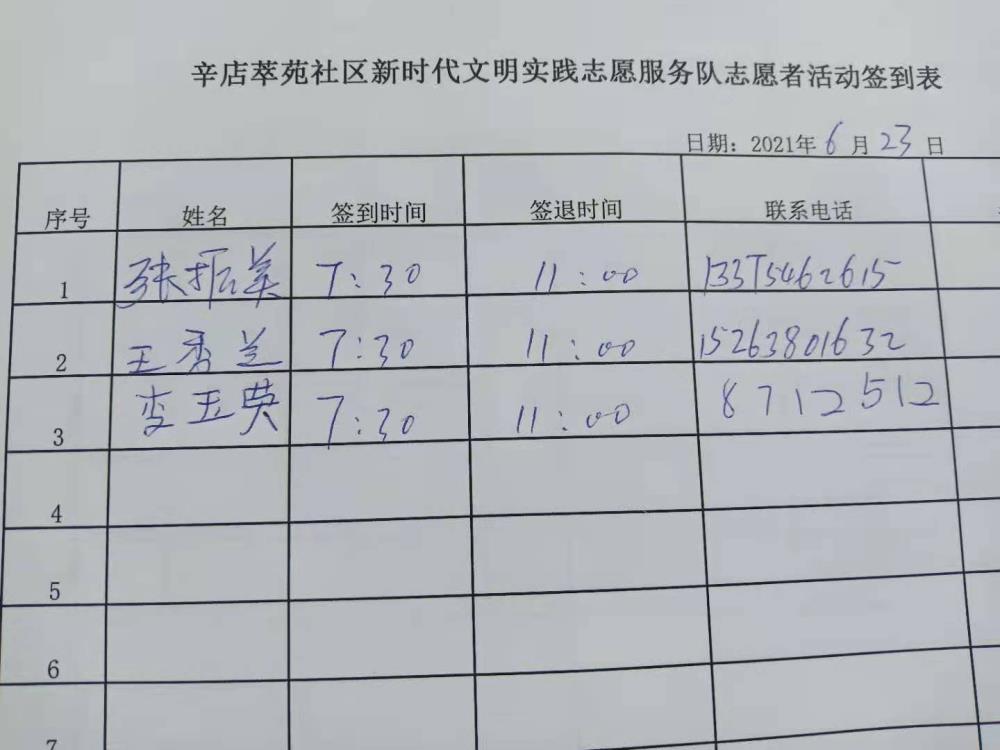 辛店萃苑社区新时代文明实践志愿服务队志愿者活动签到表
日期：2021年6月23日
序号 姓名 签到时间 签退时间 联系电话
1 张振英 7:30 11:00 13375462615
2 王秀兰 7:30 11:00 15263801632
3 李玉英 7:30 11:00 8712512
4
5
6
7